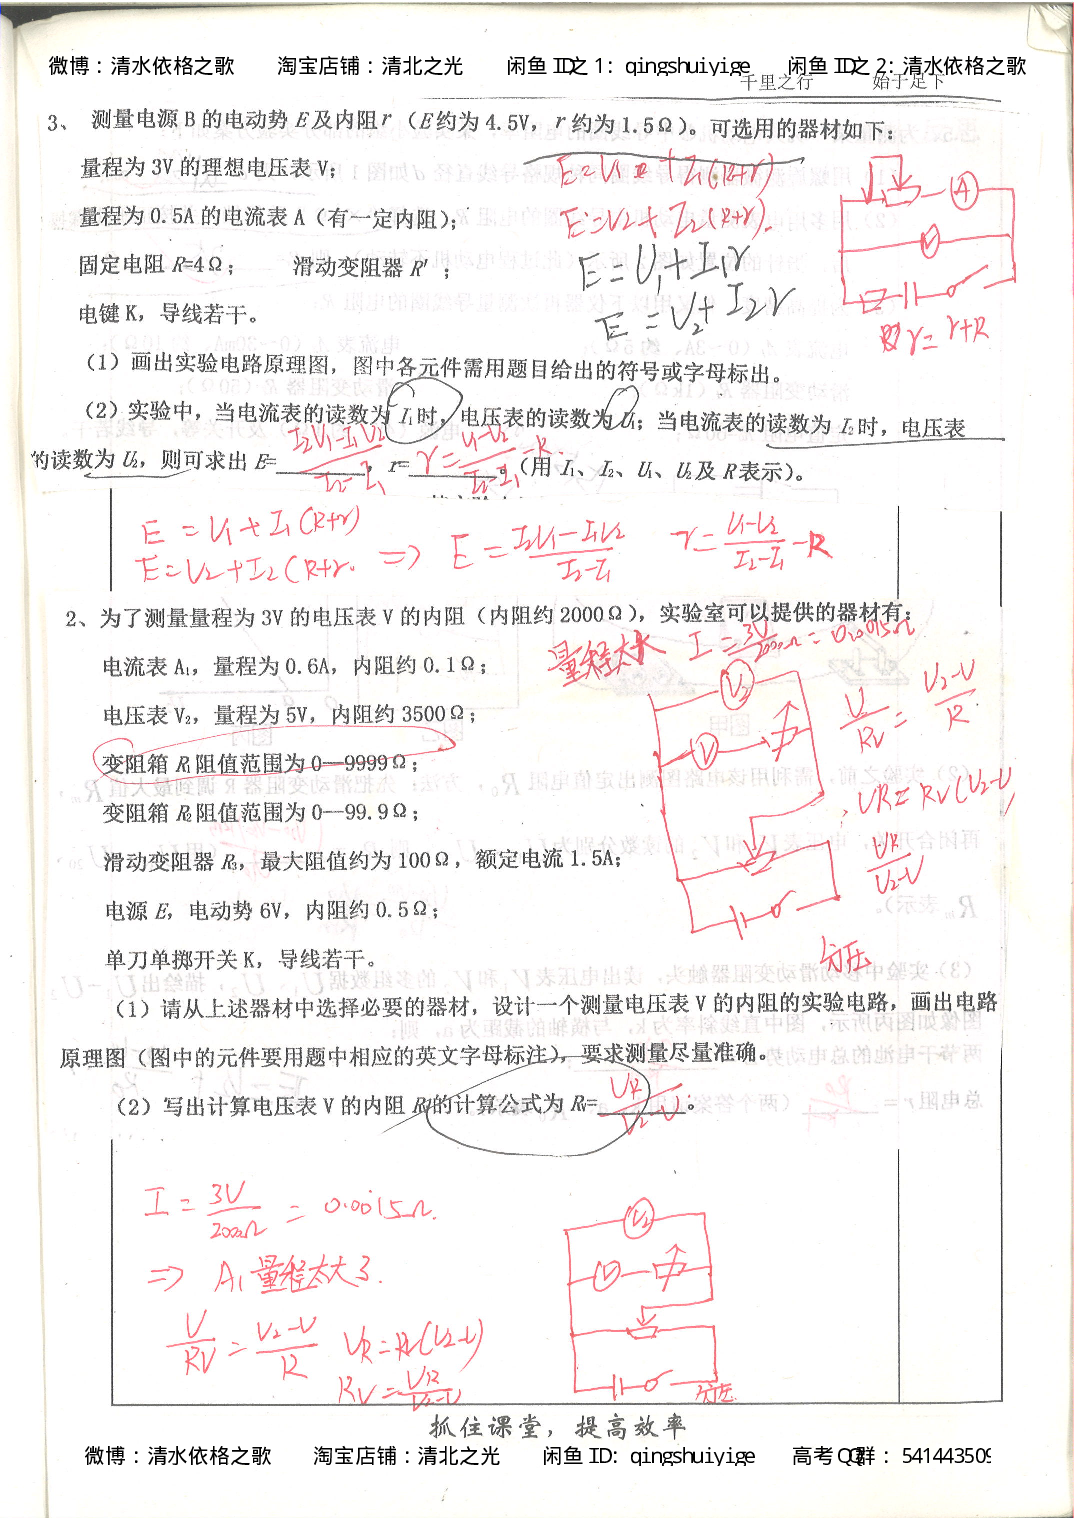 微博：清水依格之歌 淘宝店铺：清北之光 闲鱼 ID之 1: qingshuiyige 闲鱼 ID之 2: 清水依格之歌
千里之行 始于足下
3、 测量电源 B 的电动势 E 及内阻 r （E 约为 4.5V, r 约为 1.5Ω）。可选用的器材如下：
量程为 3V 的理想电压表 V；
E=U1+I1(R+r)
量程为 0.5A 的电流表 A（有一定内阻）；
E=U2+I2(R+r).
A
固定电阻 R=4Ω； 滑动变阻器 R′ ；
E=U1+I1r
V
电键 K，导线若干。
E=U2+I2r
r=r+R
（1）画出实验电路原理图，图中各元件需用题目给出的符号或字母标出。
（2）实验中，当电流表的读数为 I₁时，电压表的读数为 U₁；当电流表的读数为 I₂时，电压表
的读数为 U₂，则可求出 E=I2U1-I1U2/I2-I1，r=r=U1-U2/I2-I1-R。（用 I₁、I₂、U₁、U₂及 R 表示）。
E=U1+I1(R+r)
E=U2+I2(R+r. => E=I2U1-I1U2/I2-I1 r=U1-U2/I2-I1-R
2、为了测量量程为 3V 的电压表 V 的内阻（内阻约 2000Ω），实验室可以提供的器材有：
电流表 A₁，量程为 0.6A，内阻约 0.1Ω；
量程太大 I=3V/2000Ω=0.0015Ω
电压表 V₂，量程为 5V，内阻约 3500Ω；
V2
U/RV=U2-U/R
变阻箱 R₁阻值范围为 0—9999Ω；
V
变阻箱 R₂阻值范围为 0—99.9Ω；
UR=RV(U2-U
滑动变阻器 R₃，最大阻值约为 100Ω，额定电流 1.5A；
UR/U2-U
电源 E，电动势 6V，内阻约 0.5Ω；
单刀单掷开关 K，导线若干。
分压
（1）请从上述器材中选择必要的器材，设计一个测量电压表 V 的内阻的实验电路，画出电路
原理图（图中的元件要用题中相应的英文字母标注），要求测量尽量准确。
（2）写出计算电压表 V 的内阻 Rv的计算公式为 Rv=UR/U2-U。
I=3V/2000Ω=0.0015Ω.
V2
=> A1量程太大了.
V
U/RV=U2-U/R UR=RV(U2-U)
RV=UR/U2-U
分压
抓住课堂，提高效率
微博：清水依格之歌 淘宝店铺：清北之光 闲鱼 ID: qingshuiyige 高考QQ群：541443509